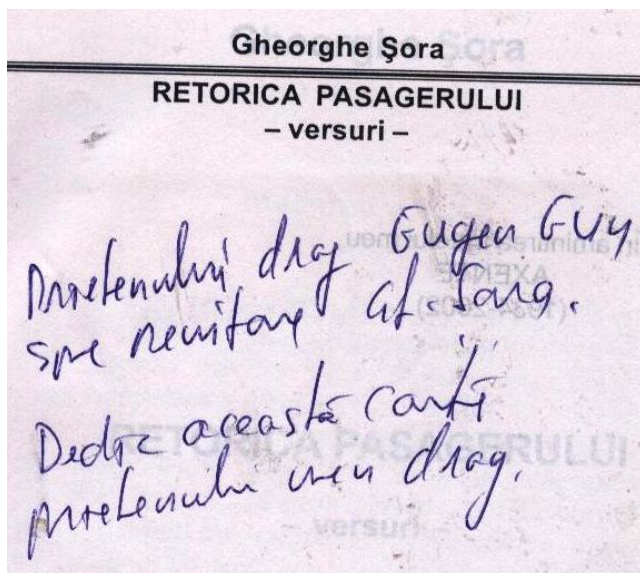 Gheorghe Şora
RETORICA PASAGERULUI
– versuri –
Prietenului drag Eugen
spre neuitare
Dedic această carte
prietenului meu drag.